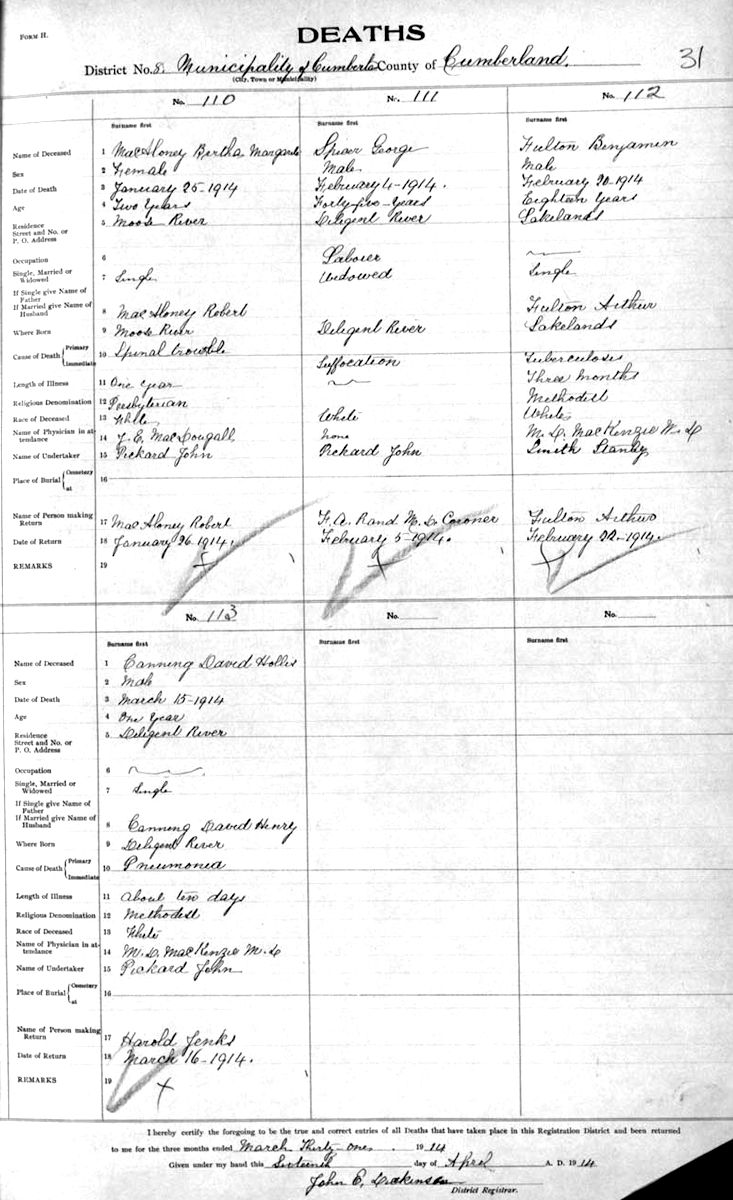 FORM H.
DEATHS
31
District No. 8. Municipality of Cumberla County of Cumberland.
(City, Town or Municipality)
No. 110 No. 111 No. 112
Surname first Surname first Surname first
Name of Deceased 1 MacAloney Bertha Margaret Spicer George Fulton Benjamin
Sex 2 Female Male Male
Date of Death 3 January 25-1914 February 4-1914. February 20-1914
Age 4 Two Years Forty-five-Years Eighteen Years
Residence Street and No. or P. O. Address 5 Moose River Diligent River Lakelands
Occupation 6 Laborer
Single, Married or Widowed 7 Single Widowed Single
If Single give Name of Father
If Married give Name of Husband 8 MacAloney Robert Fulton Arthur
Where Born 9 Moose River Diligent River Lakelands
Cause of Death { Primary Immediate 10 Spinal trouble Suffocation Tuberculosis
Length of Illness 11 One Year Three Months
Religious Denomination 12 Presbyterian Methodist
Race of Deceased 13 White White White
Name of Physician in attendance 14 MacDougall None M. D. MacKenzie M. D
Name of Undertaker 15 Pickard John Pickard John Smith Stanley
Place of Burial { Cemetery at 16
Name of Person making Return 17 MacAloney Robert F. A. Rand M. D. Coroner Fulton Arthur
Date of Return 18 January 26-1914. February 5-1914. February 22-1914.
REMARKS 19
No. 113 No. No.
Surname first Surname first Surname first
Name of Deceased 1 Canning David Hollis
Sex 2 Male
Date of Death 3 March 15-1914
Age 4 One Year
Residence Street and No. or P. O. Address 5 Diligent River
Occupation 6
Single, Married or Widowed 7 Single
If Single give Name of Father
If Married give Name of Husband 8 Canning David Henry
Where Born 9 Diligent River
Cause of Death { Primary Immediate 10 Pneumonia
Length of Illness 11 About ten days
Religious Denomination 12 Methodist
Race of Deceased 13 White
Name of Physician in attendance 14 M. D. MacKenzie M. D
Name of Undertaker 15 Pickard John
Place of Burial { Cemetery at 16
Name of Person making Return 17 Harold Jenks
Date of Return 18 March 16-1914.
REMARKS 19
I hereby certify the foregoing to be the true and correct entries of all Deaths that have taken place in this Registration District and been returned
to me for the three months ended March Thirty-one 1914
Given under my hand this Sixteenth day of April A. D. 1914
John E. Dickinson
District Registrar.